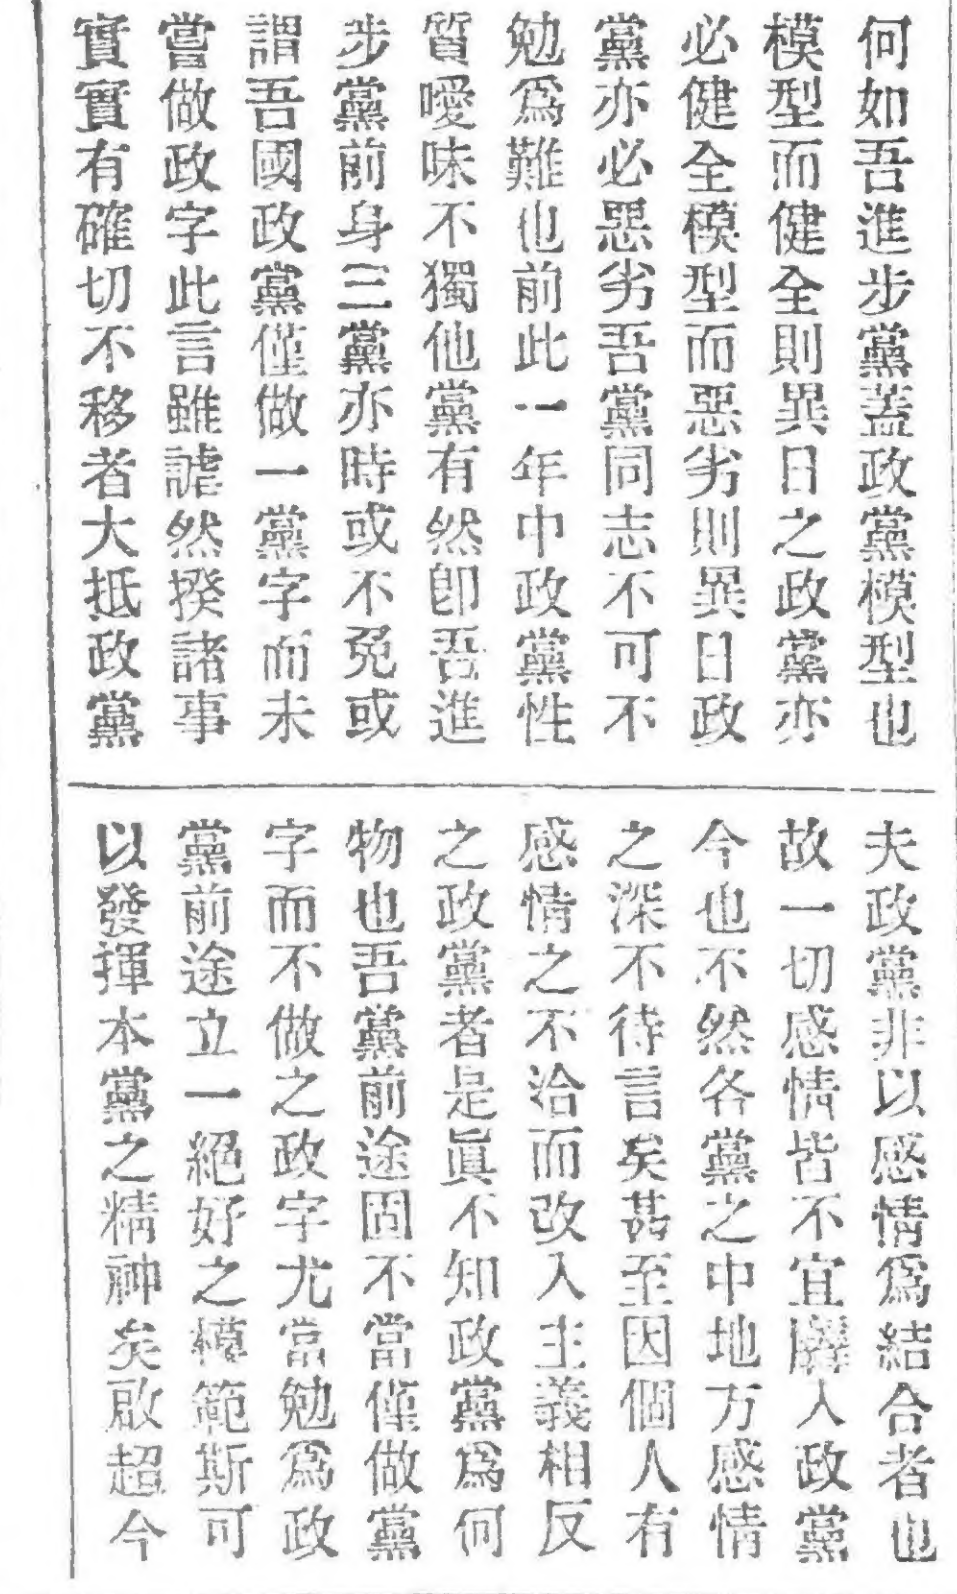 何如吾進步黨蓋政黨模型也
模型而健全則異日之政黨亦
必健全模型而惡劣則異日政
黨亦必惡劣吾黨同志不可不
勉爲難也前此一年中政黨性
質曖昧不獨他黨有然卽吾進
步黨前身三黨亦時或不免或
謂吾國政黨僅做一黨字而未
嘗做政字此言雖謔然揆諸事
實實有確切不移者大抵政黨
夫政黨非以感情爲結合者也
故一切感情皆不宜羼入政黨
今也不然各黨之中地方感情
之深不待言矣甚至因個人有
感情之不洽而改入主義相反
之政黨者是眞不知政黨爲何
物也吾黨前途固不當僅做黨
字而不做之政字尤當勉爲政
黨前途立一絕好之模範斯可
以發揮本黨之精神矣啟超今